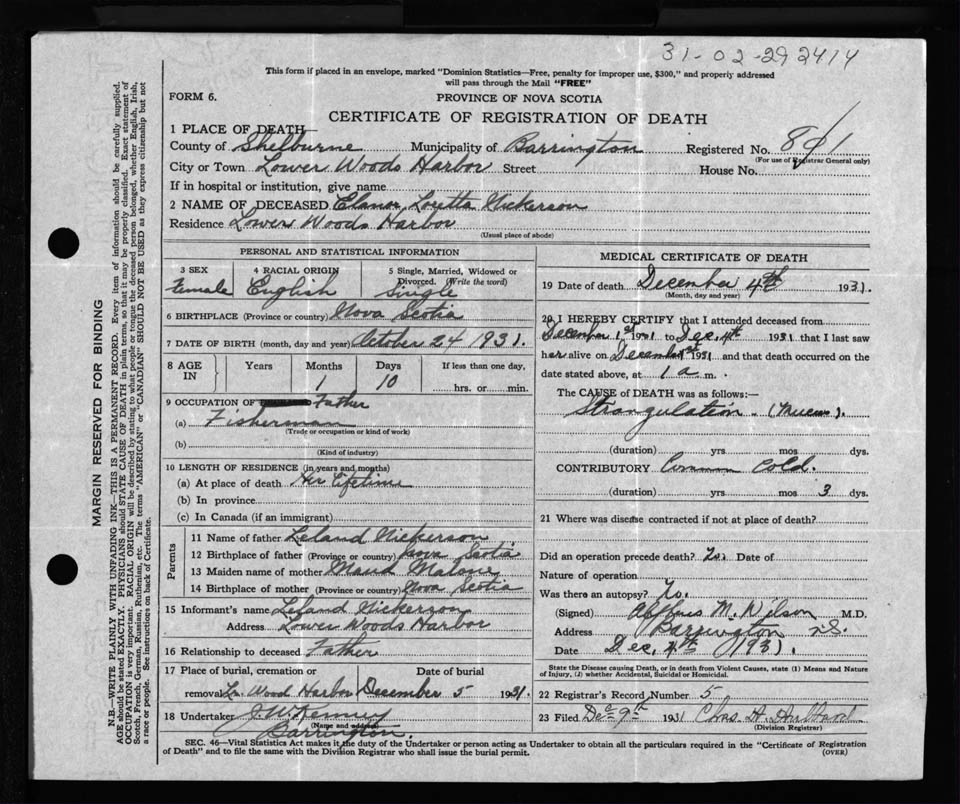 31-02-292414
This form if placed in an envelope, marked "Dominion Statistics—Free, penalty for improper use, $300," and properly addressed
will pass through the Mail "FREE"
FORM 6.
PROVINCE OF NOVA SCOTIA
CERTIFICATE OF REGISTRATION OF DEATH
1 PLACE OF DEATH
County of Shelburne Municipality of Barrington Registered No.
(For use of Registrar General only)
City or Town Lower Woods Harbor Street House No.
If in hospital or institution, give name
2 NAME OF DECEASED Elanor Loretta Nickerson
Residence Lower Woods Harbor
(Usual place of abode)
PERSONAL AND STATISTICAL INFORMATION
3 SEX 4 RACIAL ORIGIN 5 Single, Married, Widowed or
Divorced. (Write the word)
Female English Single
6 BIRTHPLACE (Province or country) Nova Scotia
7 DATE OF BIRTH (month, day and year) October 24 1931.
8 AGE IN Years Months Days If less than one day,
1 10 hrs. or min.
9 OCCUPATION OF Father
(a) Fisherman
(Trade or occupation or kind of work)
(b)
(Kind of industry)
10 LENGTH OF RESIDENCE (in years and months)
(a) At place of death Her Lifetime
(b) In province
(c) In Canada (if an immigrant)
Parents
11 Name of father Leland Nickerson
12 Birthplace of father (Province or country) Nova Scotia
13 Maiden name of mother Maud Malone
14 Birthplace of mother (Province or country) Nova Scotia
15 Informant's name Leland Nickerson
Address Lower Woods Harbor
16 Relationship to deceased Father
17 Place of burial, cremation or Date of burial
removal Lr. Wood Harbor December 5 1931.
18 Undertaker
(Name and address)
Barrington.
MEDICAL CERTIFICATE OF DEATH
19 Date of death December 4th 1931.
(Month, day and year)
20 I HEREBY CERTIFY that I attended deceased from
December 1st 1931 to Dec. 4th 1931 that I last saw
her alive on December 1st 1931 and that death occurred on the
date stated above, at 1 a m.
The CAUSE OF DEATH was as follows:—
Strangulation. (Mucus).
(duration) yrs mos dys.
CONTRIBUTORY Common Cold.
(duration) yrs mos 3 dys.
21 Where was disease contracted if not at place of death?
Did an operation precede death? No. Date of
Nature of operation
Was there an autopsy? No.
(Signed) M. Wilson M.D.
Address Barrington N.S.
Date Dec. 4th 1931.
State the Disease causing Death, or in death from Violent Causes, state (1) Means and Nature
of Injury, (2) whether Accidental, Suicidal or Homicidal.
22 Registrar's Record Number 5
23 Filed Dec 9th 1931 Chas. H. Hubbard
(Division Registrar)
SEC. 46—Vital Statistics Act makes it the duty of the Undertaker or person acting as Undertaker to obtain all the particulars required in the "Certificate of Registration
of Death" and to file the same with the Division Registrar who shall issue the burial permit.
(OVER)
MARGIN RESERVED FOR BINDING
N.B.—WRITE PLAINLY WITH UNFADING INK—THIS IS A PERMANENT RECORD. Every item of information should be carefully supplied.
AGE should be stated EXACTLY. PHYSICIANS should STATE CAUSE OF DEATH in plain terms, so that it may be properly classified. Exact statement of
OCCUPATION is very important. RACIAL ORIGIN will be described by stating to what people or tongue the deceased person belonged, whether English, Irish,
Scotch, French, German, Russian, Ruthenian, etc. The terms "AMERICAN" or "CANADIAN" SHOULD NOT BE USED as they express citizenship but not
a race or people. See instructions on back of Certificate.